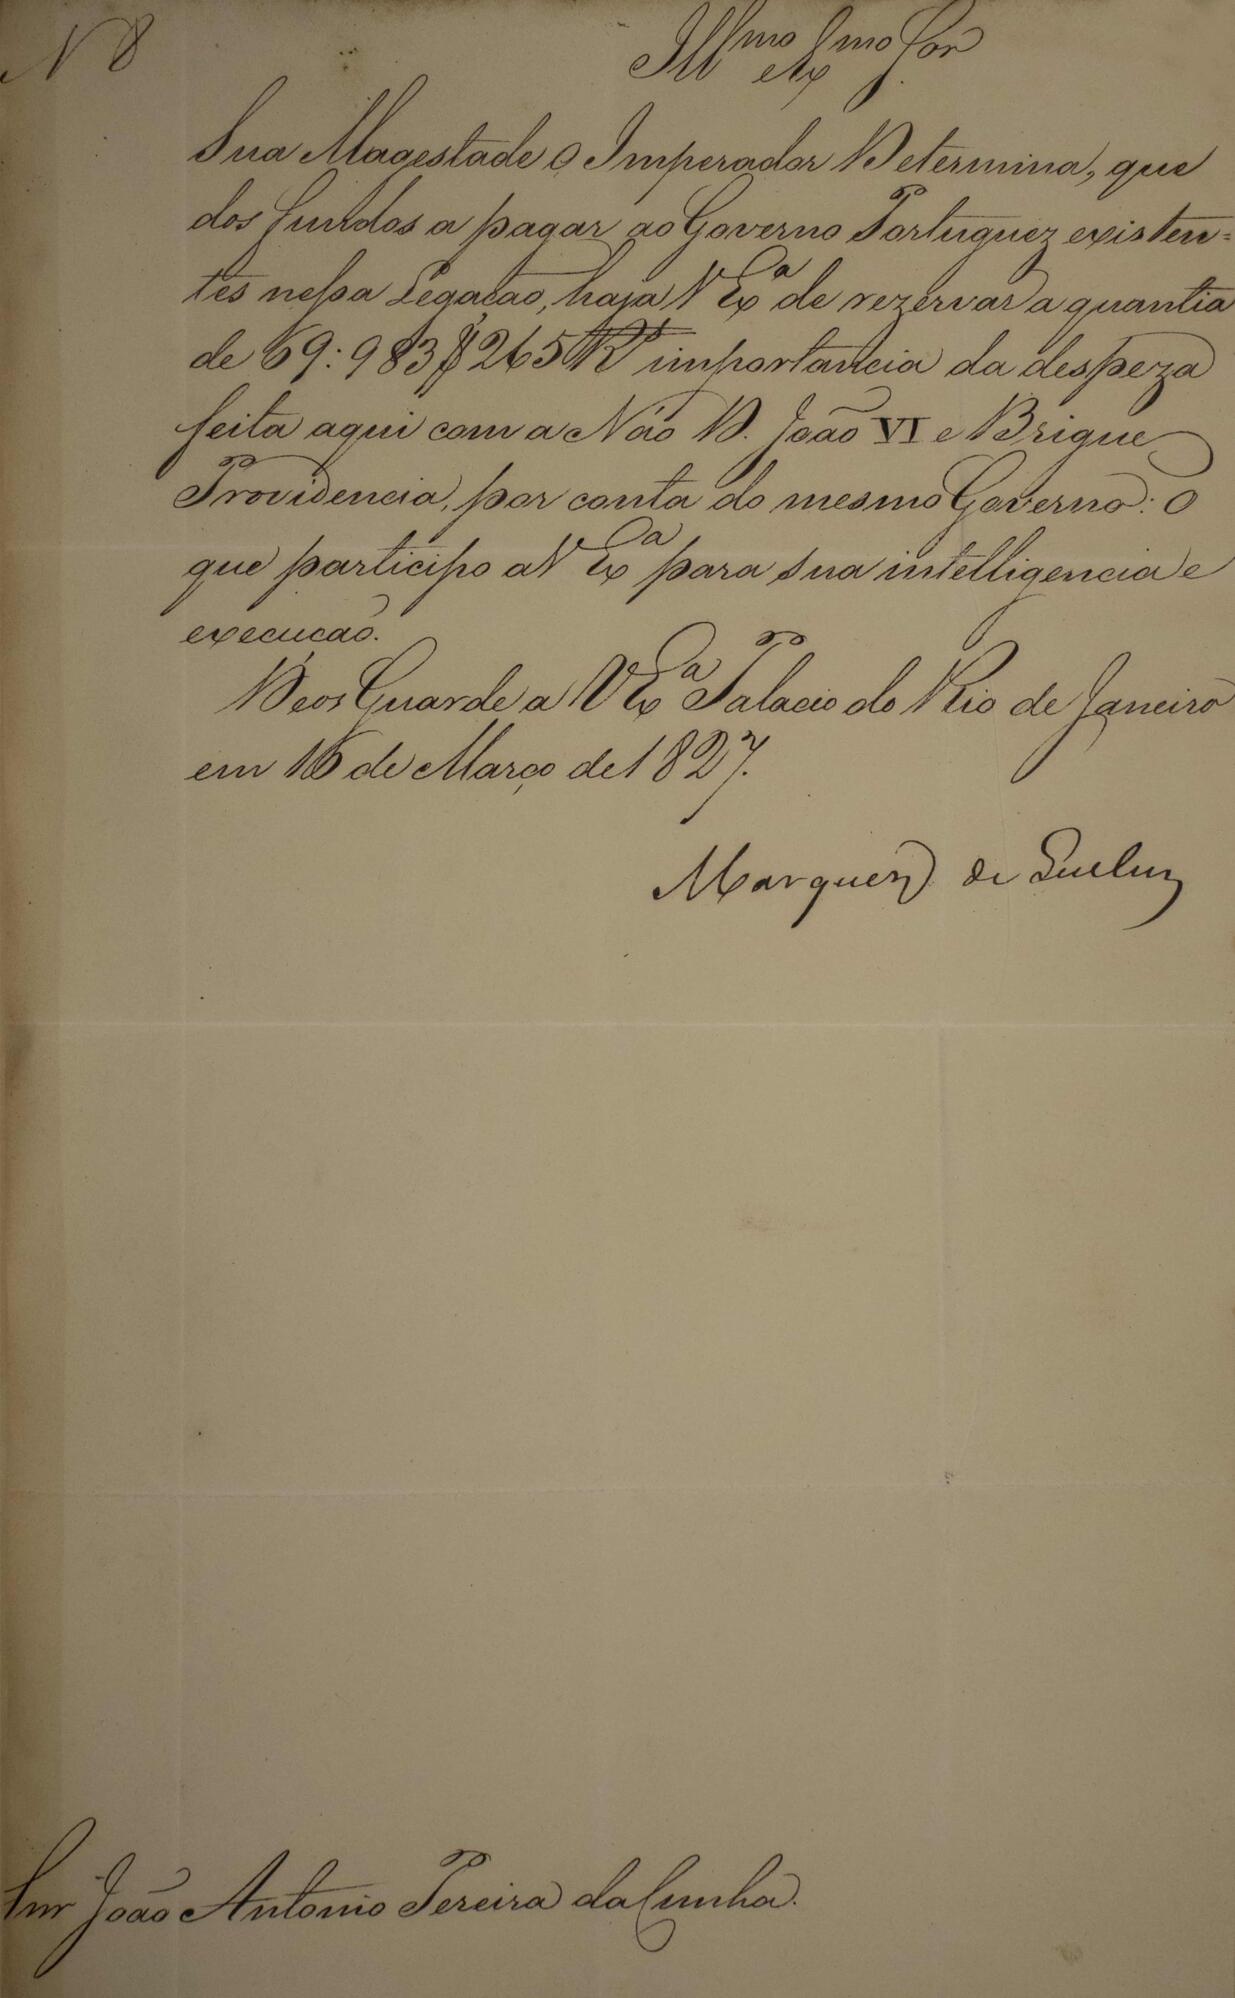 N 8
Illmo e Exmo Sor
Sua Magestade O Imperador Determina, que
dos fundos a pagar ao Governo Portuguez existen=
tes nessa Legação, haja V Exa de rezervar a quantia
de 69:983$265 Rs importancia da despeza
feita aqui com a Náo D. João VI e Brigue
Providencia, por conta do mesmo Governo: O
que participo a V Exa para sua intelligencia e
execução.
Deos Guarde a V Exa Palacio do Rio de Janeiro
em 16 de Março de 1827.
Marquez de Queluz
Snr João Antonio Pereira da Cunha.